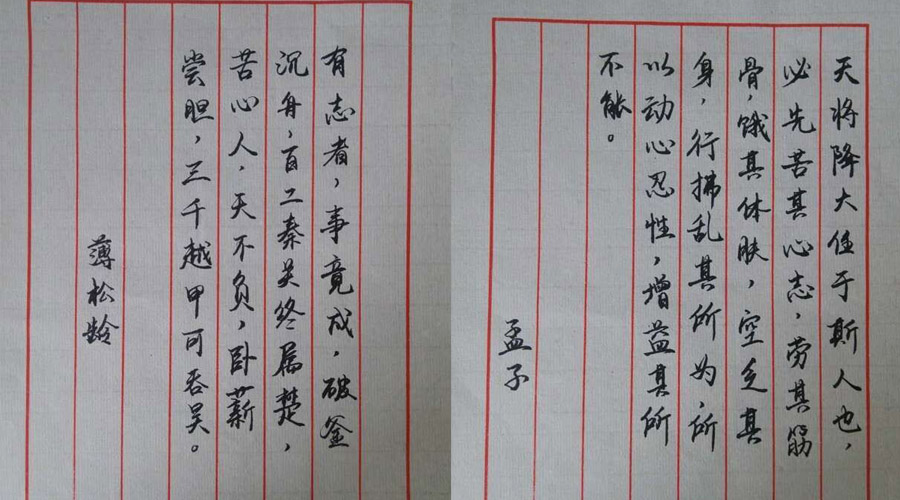 有志者，事竟成，破釜
沉舟，百二秦关终属楚，
苦心人，天不负，卧薪
尝胆，三千越甲可吞吴。
薄松龄
天将降大任于斯人也，
必先苦其心志，劳其筋
骨，饿其体肤，空乏其
身，行拂乱其所为，所
以动心忍性，增益其所
不能。
孟子